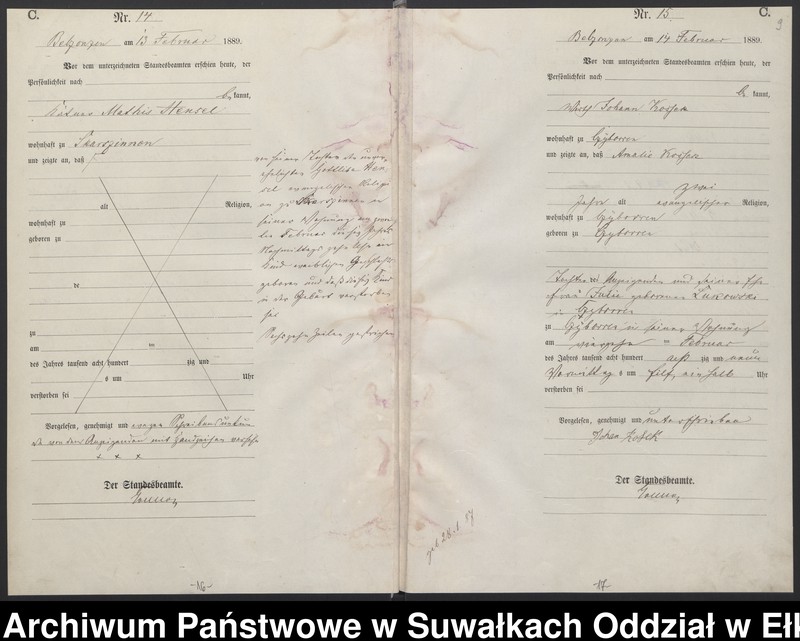 C.
Nr. 14
Belzonzen am 13 Februar 1889.
Vor dem unterzeichneten Standesbeamten erschien heute, der
Persönlichkeit nach
be kannt,
Mathis Hensel
wohnhaft zu Skarszinnen
und zeigte an, daß
alt Religion,
wohnhaft zu
geboren zu
de
zu
am ten
des Jahres tausend acht hundert zig und
s um Uhr
verstorben sei
Vorgelesen, genehmigt und wegen
von dem Anzeigenden mit Handzeichen
+ + x
Der Standesbeamte.
-16-
evangelischer Religi
on zu Skarszinnen in
seiner Wohnung am
ten Februar dieses Jahres
Nachmittags zehn Uhr ein
Kind weiblichen Geschlechts
geboren und daß dieses Kind
in der Geburt verstorben
sei
Sechszehn Zeilen gestrichen
C.
Nr. 15
9
Belzonzen am 14 Februar 1889.
Vor dem unterzeichneten Standesbeamten erschien heute, der
Persönlichkeit nach
be kannt,
Wirth Johann
wohnhaft zu Gyborren
und zeigte an, daß Amalie
zwei
Jahre alt evangelischer Religion,
wohnhaft zu Gyborren
geboren zu Gyborren
Tochter des Anzeigenden und seiner Ehe
frau Julie geborenen Lukowski
in Gyborren
zu Gyborren in seiner Wohnung
am vierzehn ten Februar
des Jahres tausend acht hundert acht zig und neun
Vormittag s um ein halb Uhr
verstorben sei
Vorgelesen, genehmigt und unterschrieben
Der Standesbeamte.
geb. 28.1. 87
-17-
Archiwum Państwowe w Suwałkach Oddział w Eł